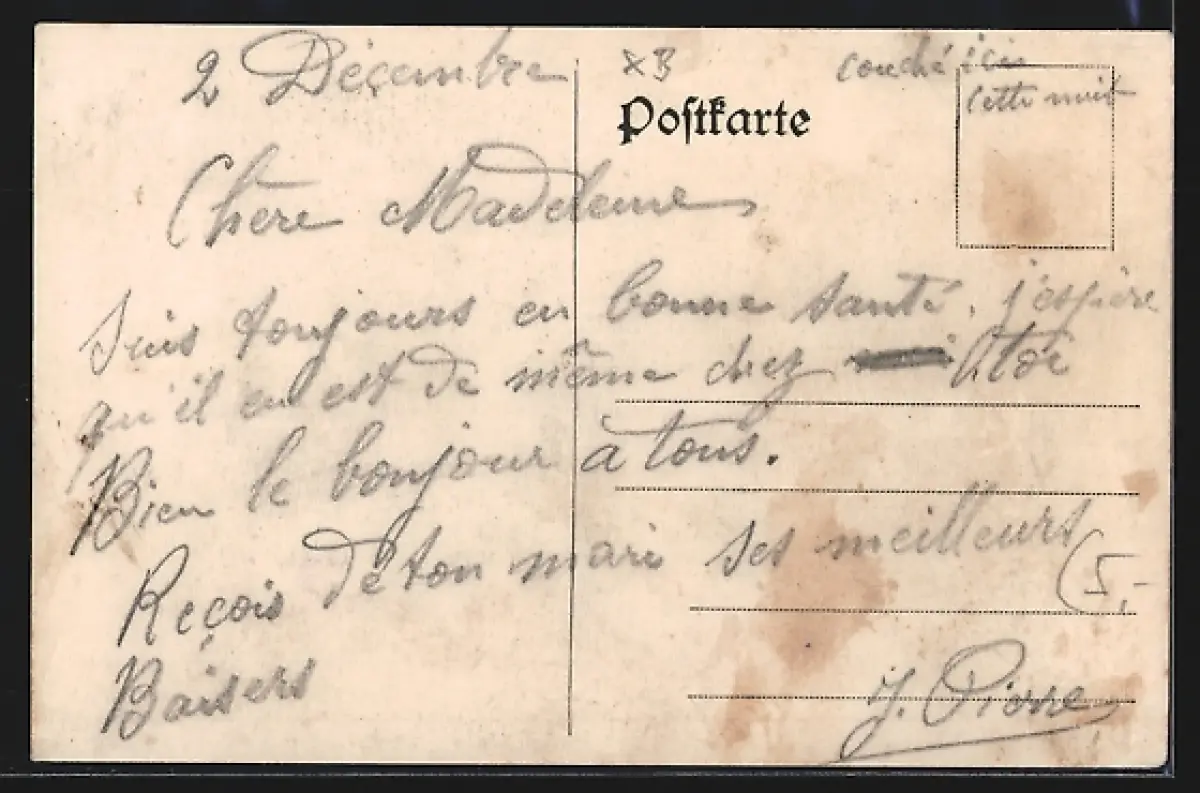 2 Déçembre
XB
Postkarte
couché ici
cette nuit
Chère Madeleine
Suis toujours en bonne santé, j'espère
qu'il en est de même chez toi
Bien le bonjour à tous.
Reçois de ton mari ses meilleurs
Baisers
(5,-
J. Pierre